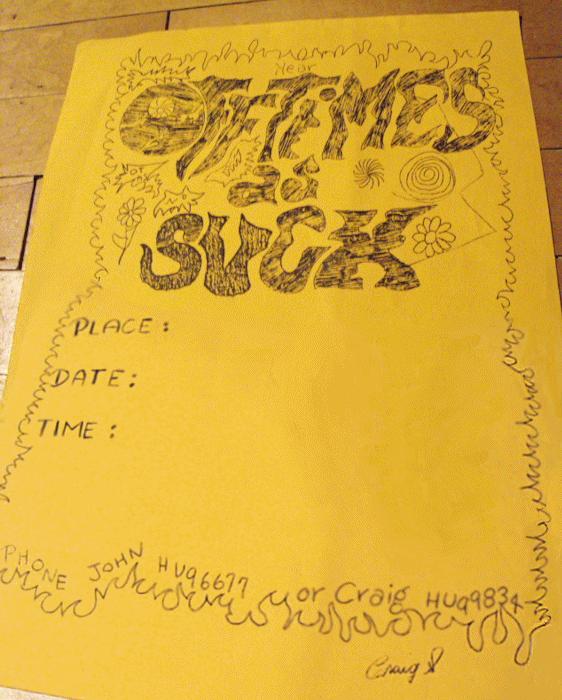 Hear
OFTTIMES
as
SUCK
PLACE:
DATE:
TIME:
PHONE JOHN HU96677 or Craig HU99834
Craig S